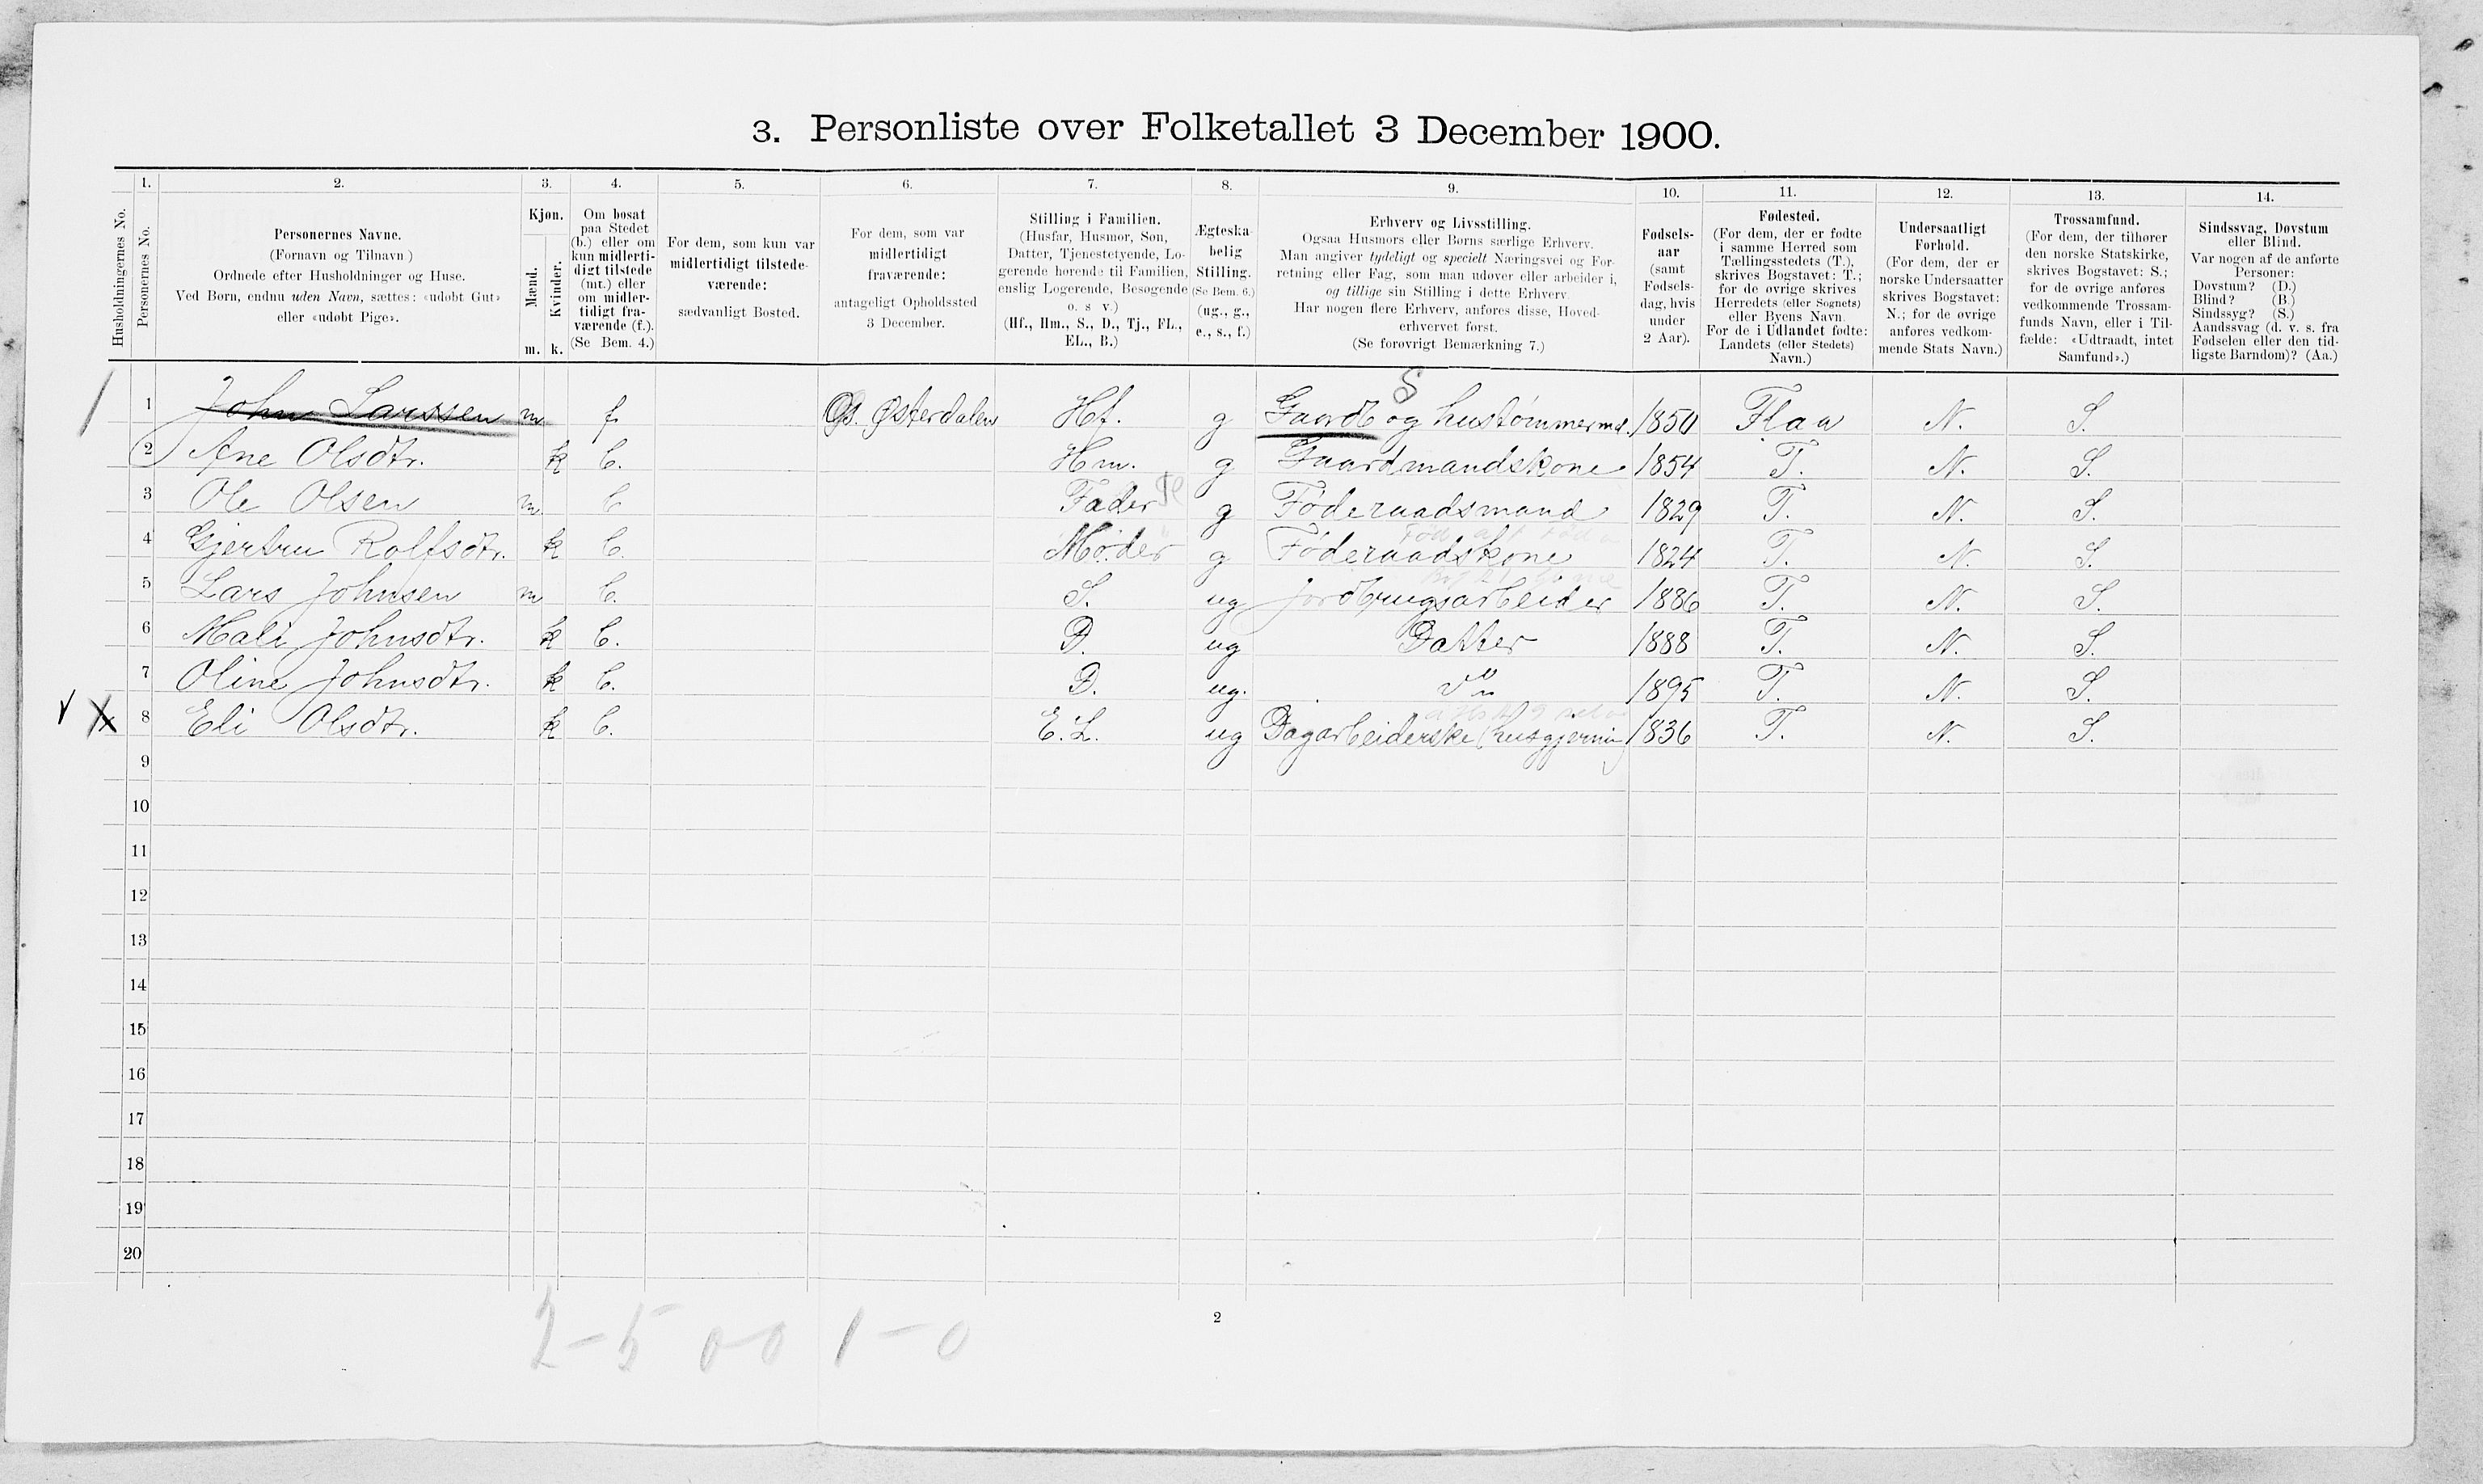 3. Personliste over Folketallet 3 December 1900.
1. 2. 3. 4. 5. 6. 7. 8. 9. 10. 11. 12. 13. 14.
Husholdningernes No.
Personernes No.
Personernes Navne.
(Fornavn og Tilnavn)
Ordnede efter Husholdninger og Huse.
Ved Børn, endnu uden Navn, sættes: «udøbt Gut»
eller «udøbt Pige».
Kjøn.
Mænd.
Kvinder.
m. k.
Om bosat
paa Stedet
(b.) eller om
kun midlerti-
digt tilstede
(mt.) eller
om midler-
tidigt fra-
værende (f.).
(Se Bem. 4.)
For dem, som kun var
midlertidigt tilstede-
værende:
sædvanligt Bosted.
For dem, som var
midlertidigt
fraværende:
antageligt Opholdssted
3 December.
Stilling i Familien.
(Husfar, Husmor, Søn,
Datter, Tjenestetyende, Lo-
gerende hørende til Familien,
enslig Logerende, Besøgende
o. s v.)
(Hf., Hm., S., D., Tj., FL.,
EL., B.)
Ægteska-
belig
Stilling.
(Se Bem. 6.)
(ug., g.,
e., s., f.)
Erhverv og Livsstilling.
Ogsaa Husmors eller Børns særlige Erhverv.
Man angiver tydeligt og specielt Næringsvei og For-
retning eller Fag, som man udøver eller arbeider i,
og tillige sin Stilling i dette Erhverv.
Har nogen flere Erhverv, anføres disse, Hoved-
erhvervet først.
(Se forøvrigt Bemærkning 7.)
Fødsels-
aar
(samt
Fødsels-
dag, hvis
under
2 Aar).
Fødested.
(For dem, der er fødte
i samme Herred som
Tællingsstedets (T.),
skrives Bogstavet: T.;
for de øvrige skrives
Herredets (eller Sognets)
eller Byens Navn.
For de i Udlandet fødte:
Landets (eller Stedets)
Navn.)
Undersaatligt
Forhold.
(For dem, der er
norske Undersaatter
skrives Bogstavet:
N.; for de øvrige
anføres vedkom-
mende Stats Navn.)
Trossamfund.
(For dem, der tilhører
den norske Statskirke,
skrives Bogstavet: S.;
for de øvrige anføres
vedkommende Trossam-
funds Navn, eller i Til-
fælde: «Udtraadt, intet
Samfund».)
Sindssvag, Døvstum
eller Blind.
Var nogen af de anførte
Personer:
Døvstum? (D.)
Blind? (B.)
Sindssyg? (S.)
Aandssvag (d. v. s. fra
Fødselen eller den tid-
ligste Barndom)? (Aa.)
S
1 John Larssen m f Østerdalen Hf. g Gaardb og hustømmermd. 1850 Flaa N. S.
2 Ane Olsdtr. k b. Hm. g Gaardmandskone 1854 T. N. S.
3 Ole Olsen m b Fader g Føderaadsmand 1829 T. N. S.
4 Gjertru Rolfsdtr. k b. Moder g Føderaadskone 1824 T. N. S.
5 Lars Johnsen m b. S. ug jordbrugsarbeider 1886 T. N. S.
6 Mali Johnsdtr. k b. D. ug Datter 1888 T. N. S.
7 Oline Johnsdtr. k b. D. ug. 1895 T. N. S.
8 Eli Olsdtr. k b. E.L. ug Dagarbeiderske (husgjerning) 1836 T. N. S.
9
10
11
12
13
14
15
16
17
18
19
20
2
2-5 0-0 1-0